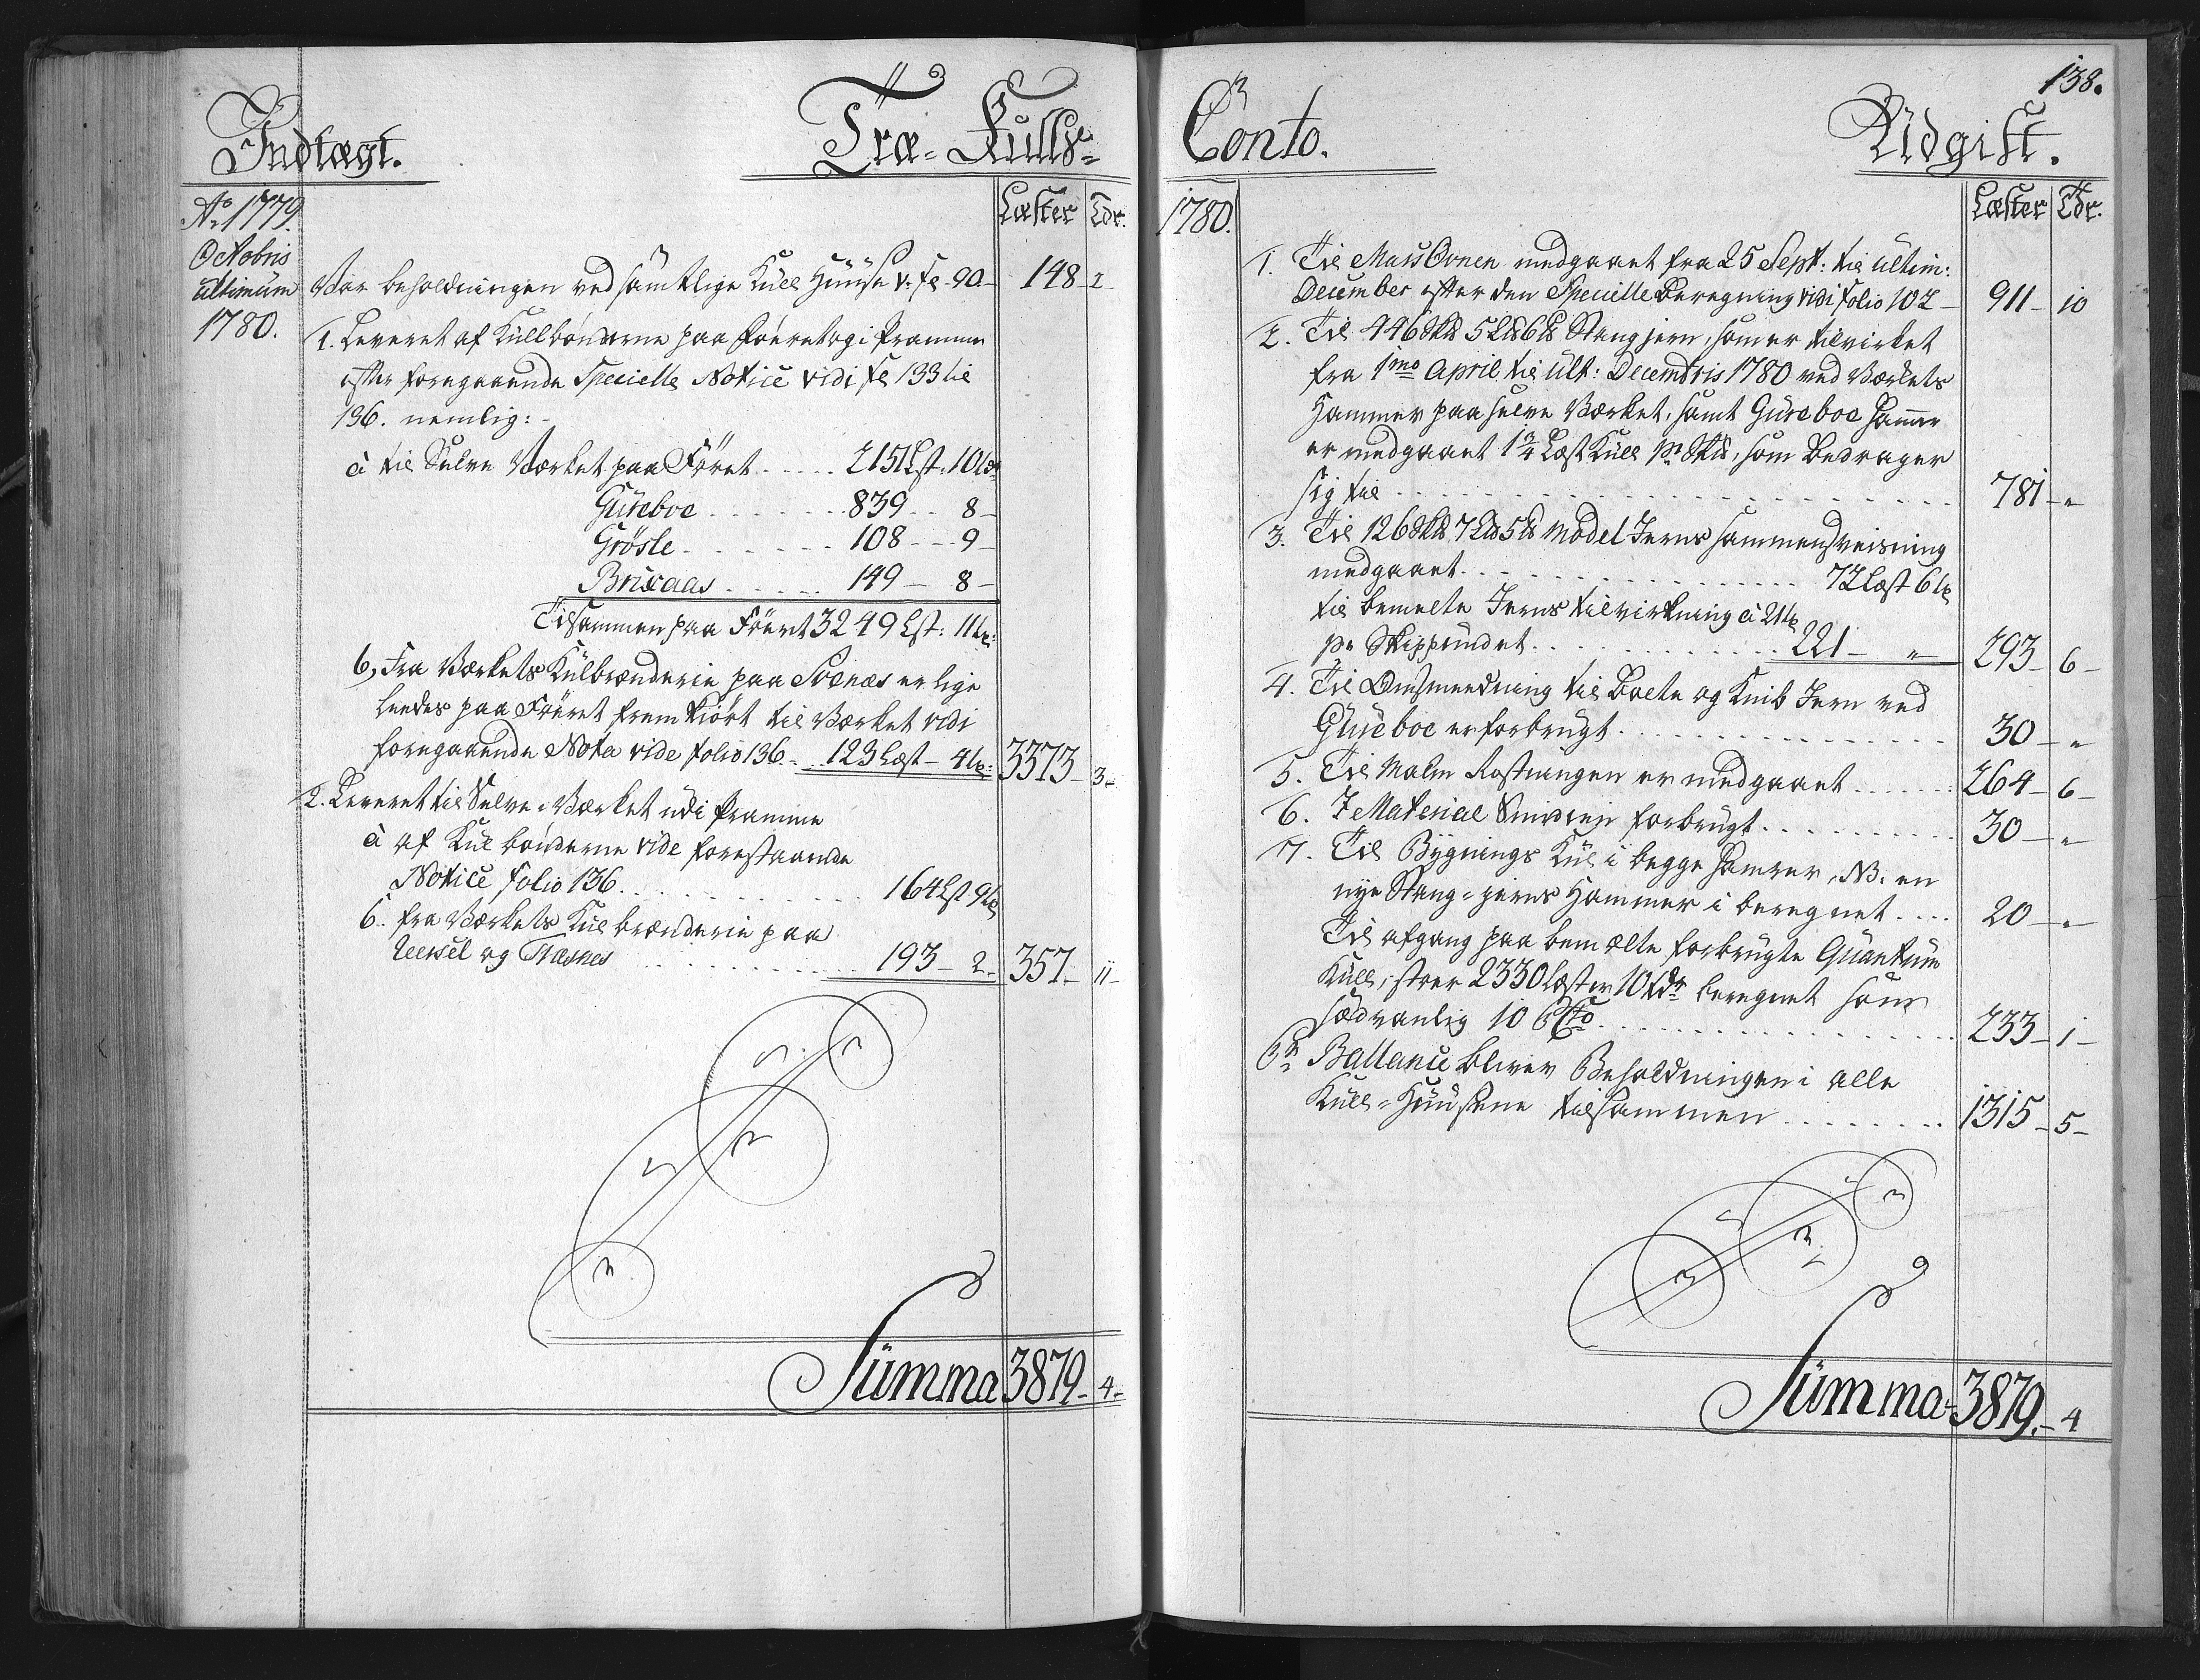 Indtægt.
Træ-Kulls-
Aº 1779.
Læster Tdr.
Octobris
ultimum Var beholdningen ved samtlige Kull Huuse v: fo 90 - 148 - 2
1780.
1. Leveret af Kullbønderne paa Føeret og i Pramme
efter foregaaende Specielle Notice vidi fo 133 til
136. nemlig: -
à til Selve Værket paa Føret ..... 2151 Lst: 10 tdr
Güseboe ....... 839 .. 8 -
Grösle ....... 108 - - 9 -
Brixaas ...... 149 - 8 -
Tilsammen paa Føeret 3249 Lst: 11 tr:
6, Fra Værkets Kulbrænderie paa Svenæs er lige
leedes paa Føeret fremkiørt til Værket vidi
foregaaende Nota vide folio 136 - .. 123 Læst - 4 tr: 3373 - 3 -
2. Leveret til Selve Værket udi Pramme
à af Kul bønderne vide forestaaende
Notice folio 136 ............ 164 Lst 9 tr
6. fra Værkets Kul brænderie paa
og Næsnes ............ 193 - 2 - 357 - 11 -
Summa 3879 - 4 -
138.
Conto.
Udgift.
1780.
Læster Tdr.
1. Til MasOvnen medgaaet fra 25 Sept: til ultim:
December efter den Specielle Beregning vidi folio 102 - 911 - 10
2. Til 446 Sk℔ 5 L℔ 6 ℔ Stangjern, som er tilvirket
fra 1mo April til ult: Decembris 1780 ved Værkets
Hammer paa selve Værket, samt Güseboe Hammer
er medgaaet 1¾ Læst Kull pr Sk℔, som Bedrager
sig til ............ 781 - "
3. Til 126 Sk℔ 7 L℔ 5 ℔ Model Jerns sammensveisning
medgaaet ............ 72 Læst 6 tr
til bemelte Jerns tilvirkning à 21 tr
pr Skippundet ............ 221 - " 293 - 6 -
4. Til Omsmedning til Bolte og Knib Jern ved
Güseboe er forbrugt ............ 30 - "
5. Til Malm Rostningen er medgaaet ...... 264 - 6 -
6. I Material Smedien forbrugt ............ 30 - "
7. Til Bygnings Kul i begge Hamrer, NB. en
nye Stang-jerns Hammer i beregnet .... 20 - "
Til afgang paa bemælte forbrugte Quantum
Kull, 2330 Læster 10 tdr beregnet som
sædvanlig 10 P Cto ............ 233 - 1 -
Pr Ballance bliver Beholdningen i alle
Kull-Huusene tilsammen ........ 1315 - 5 -
Summa 3879. - 4